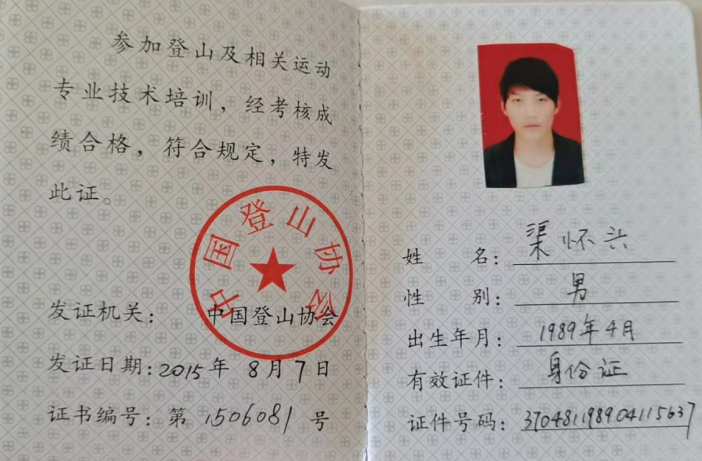 参加登山及相关运动
专业技术培训，经考核成
绩合格，符合规定，特发
此证。
中国登山协会
发证机关： 中国登山协会
发证日期：2015年 8月7日
证书编号：第 1506081 号
姓 名：渠怀兴
性 别：男
出生年月：1989年4月
有效证件：身份证
证件号码：370481198904115637